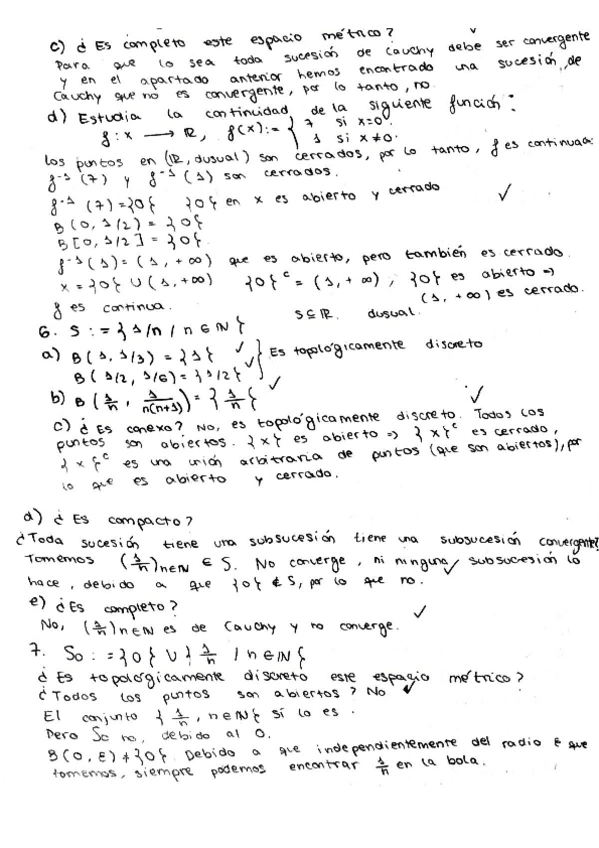 c) ¿ Es completo este espacio métrico?
Para que lo sea toda sucesión de Cauchy debe ser convergente
y en el apartado anterior hemos encontrado una sucesión de
Cauchy que no es convergente, por lo tanto, no.
d) Estudia la continuidad de la siguiente función:
f: x → ℝ, f(x):= { 7 si x=0. 1 si x≠0.
Los puntos en (ℝ, dusual) son cerrados, por lo tanto, f es continua:
f⁻¹(7) y f⁻¹(1) son cerrados.
f⁻¹(7)={0} {0} en x es abierto y cerrado ✓
B(0, 1/2) = {0}
B[0, 1/2] = {0}.
f⁻¹(1) = (1, +∞) que es abierto, pero también es cerrado.
x = {0} ∪ (1, +∞) {0}ᶜ = (1, +∞), {0} es abierto ⇒
f es continua. (1, +∞) es cerrado.
6. S := {1/n / n ∈ ℕ} S⊆ℝ. dusual.
a) B(1, 1/3) = {1} ✓
B(1/2, 1/6) = {1/2} ✓ } Es topológicamente discreto
b) B(1/n, 1/n(n+1)) = {1/n} ✓
c) ¿ Es conexo? No, es topológicamente discreto. Todos los
puntos son abiertos. {x} es abierto ⇒ {x}ᶜ es cerrado,
{x}ᶜ es una unión arbitraria de puntos (que son abiertos), por
lo que es abierto y cerrado.
d) ¿ Es compacto?
¿Toda sucesión tiene una subsucesión tiene una subsucesión convergente?
Tomemos (1/n)n∈ℕ ∈ S. No converge, ni ninguna subsucesión lo
hace, debido a que {0} ∉ S, por lo que no.
e) ¿Es completo?
No, (1/n)n∈ℕ es de Cauchy y no converge. ✓
7. So := {0} ∪ {1/n / n∈ℕ}
¿ Es topológicamente discreto este espacio métrico?
¿ Todos los puntos son abiertos? No ✓
El conjunto {1/n, n∈ℕ} sí lo es.
Pero So no, debido al 0.
B(0, ε) ≠ {0}. Debido a que independientemente del radio ε que
tomemos, siempre podemos encontrar 1/n en la bola.